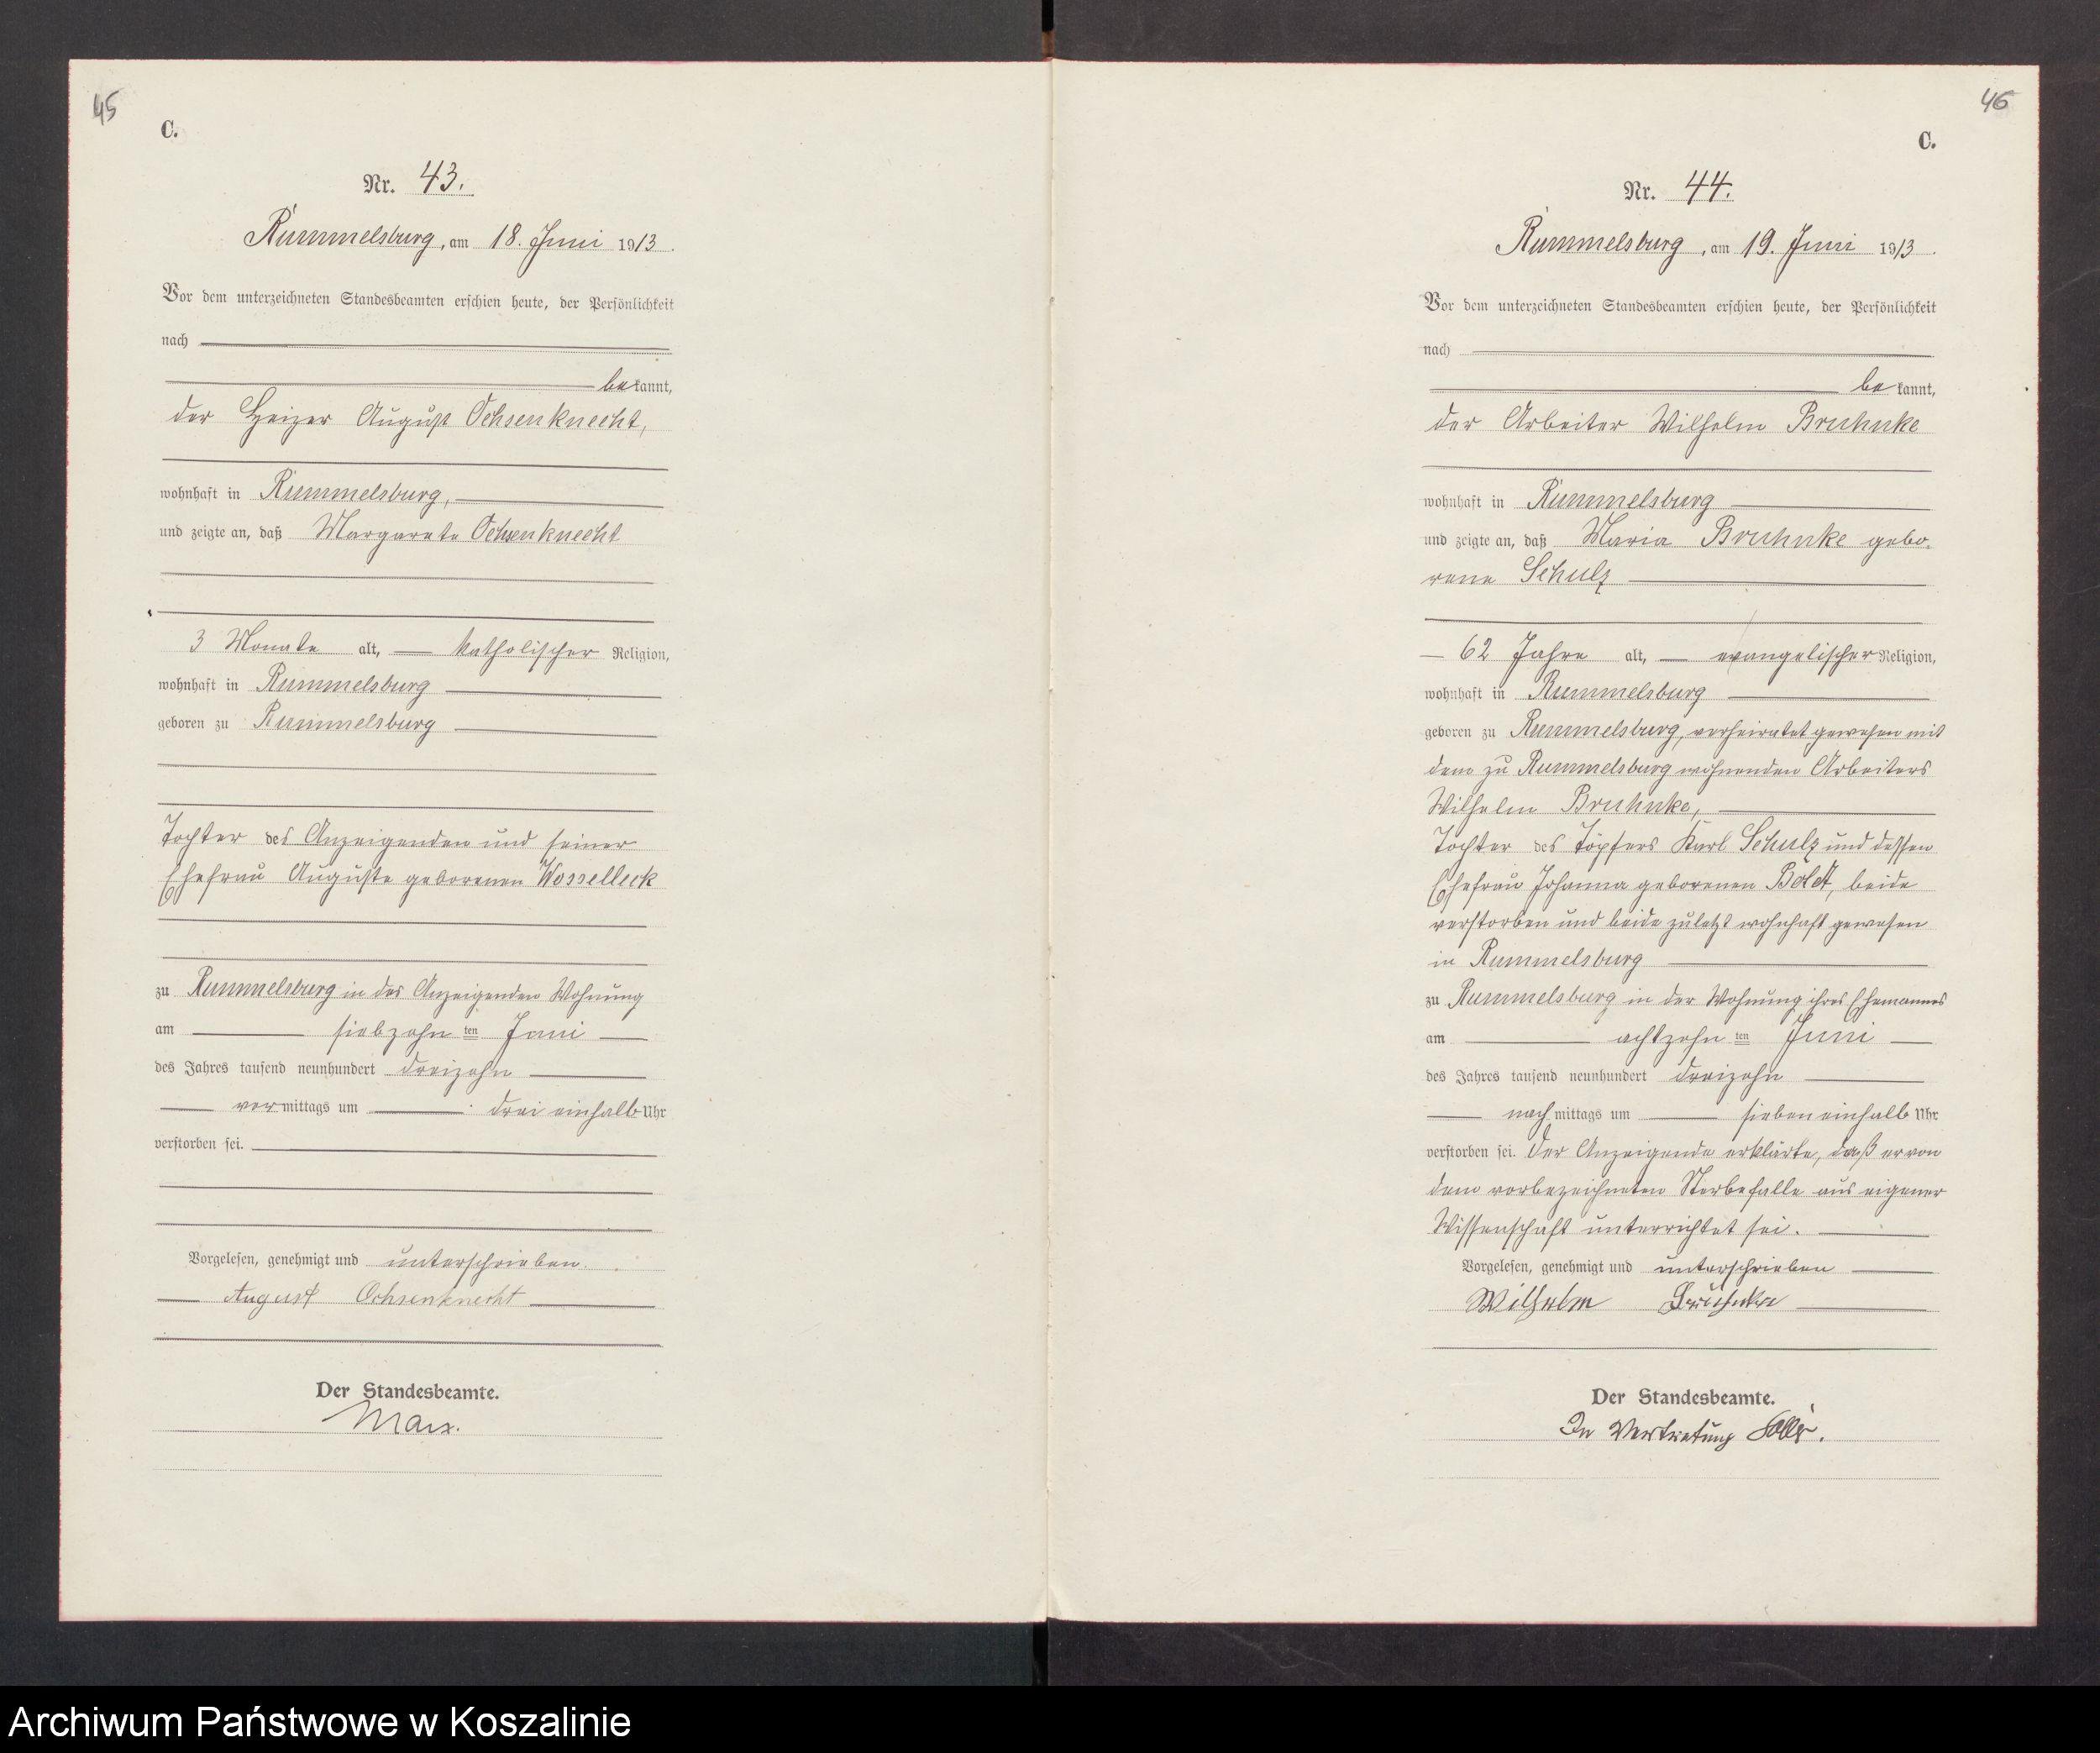 45
C.
Nr. 43.
Rummelsburg, am 18. Juni 1913.
Vor dem unterzeichneten Standesbeamten erschien heute, der Persönlichkeit
nach
bekannt,
der Heizer August Ochsenknecht,
wohnhaft in Rummelsburg,
und zeigte an, daß Margarete Ochsenknecht
3 Monate alt, katholischer Religion,
wohnhaft in Rummelsburg
geboren zu Rummelsburg
Tochter des Anzeigenden und seiner
Ehefrau Auguste geborenen Wosselleck
zu Rummelsburg in des Anzeigenden Wohnung
am siebzehnten Juni
des Jahres tausend neunhundert dreizehn
vormittags um drei einhalb Uhr
verstorben sei.
Vorgelesen, genehmigt und unterschrieben.
August Ochsenknecht
Der Standesbeamte.
Marx.
46
C.
Nr. 44.
Rummelsburg, am 19. Juni 1913.
Vor dem unterzeichneten Standesbeamten erschien heute, der Persönlichkeit
nach
bekannt,
der Arbeiter Wilhelm Bruhnke
wohnhaft in Rummelsburg
und zeigte an, daß Maria Bruhnke gebo-
rene Schulz
62 Jahre alt, evangelischer Religion,
wohnhaft in Rummelsburg
geboren zu Rummelsburg, verheiratet gewesen mit
dem zu Rummelsburg wohnenden Arbeiters
Wilhelm Bruhnke,
Tochter des Töpfers Karl Schulz und dessen
Ehefrau Johanna geborenen Boldt, beide
verstorben und beide zuletzt wohnhaft gewesen
in Rummelsburg
zu Rummelsburg in der Wohnung ihres Ehemannes
am achtzehnten Juni
des Jahres tausend neunhundert dreizehn
nachmittags um sieben einhalb Uhr
verstorben sei. Der Anzeigende erklärte, daß er von
dem vorbezeichneten Sterbefalle aus eigener
Wissenschaft unterrichtet sei.
Vorgelesen, genehmigt und unterschrieben
Wilhelm Bruhnke
Der Standesbeamte.
In Vertretung
Archiwum Państwowe w Koszalinie